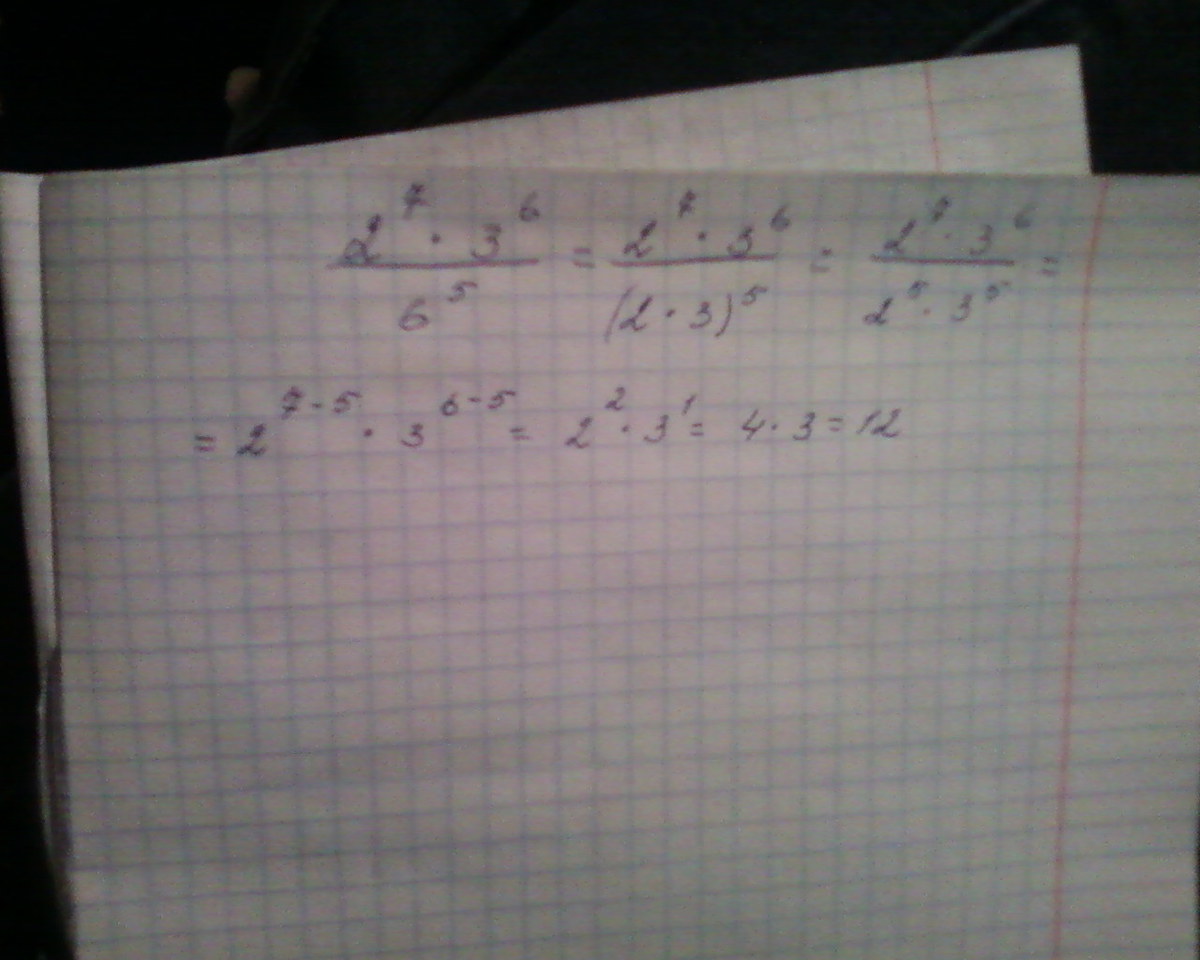 2⁷ · 3⁶ / 6⁵ = 2⁷ · 3⁶ / (2 · 3)⁵ = 2⁷ · 3⁶ / 2⁵ · 3⁵ =
= 2⁷⁻⁵ · 3⁶⁻⁵ = 2² · 3¹ = 4 · 3 = 12